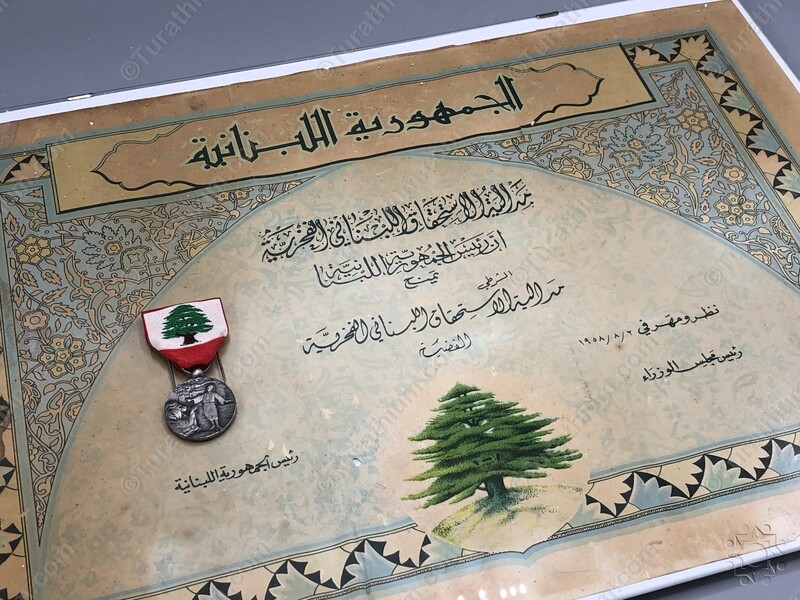 الجمهورية اللبنانية
مدالية الاستحقاق اللبناني الفخرية
ان رئيس الجمهورية اللبنانية
تمنح
الشرطي
مدالية الاستحقاق اللبناني الفخرية
الفضية
نظر ومهر في ١٩٥٨/٨/٢
رئيس مجلس الوزراء
رئيس الجمهورية اللبنانية
©Turathuna.com